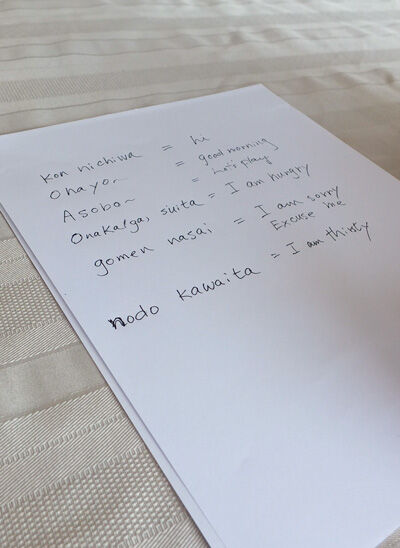 kon nichiwa = hi
Ohayo~ = good morning
Asobo~ = Let's play
Onaka(ga) suita = I am hungry
gomen nasai = I am sorry
Excuse me
nodo kawaita = I am thirsty